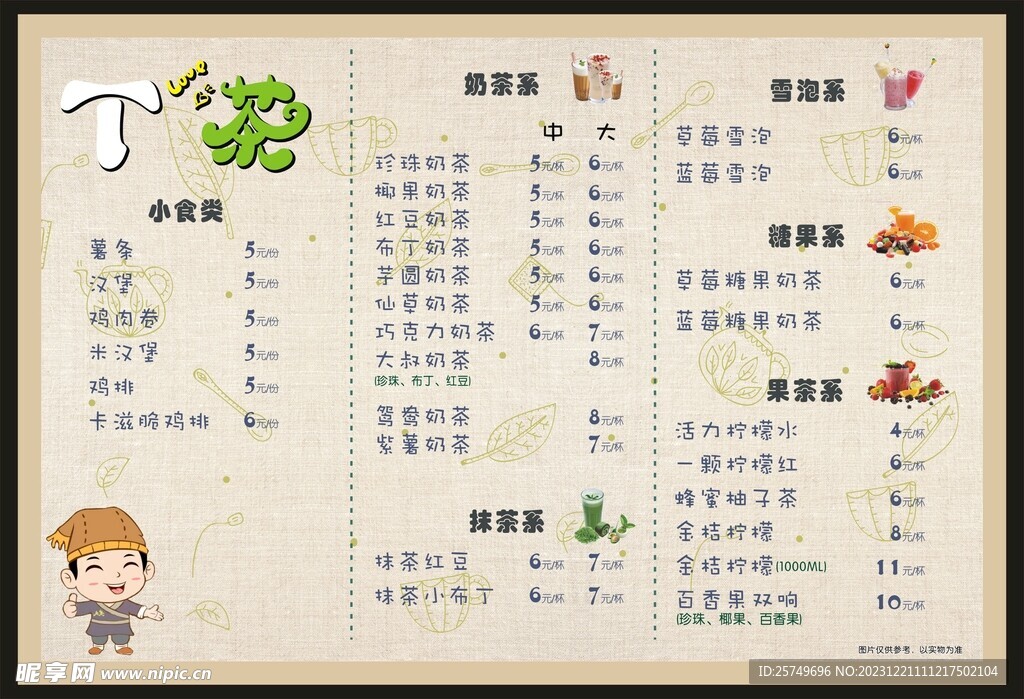 丁茶
Love
小食类
薯条 5元/份
汉堡 5元/份
鸡肉卷 5元/份
米汉堡 5元/份
鸡排 5元/份
卡滋脆鸡排 6元/份
奶茶系
中 大
珍珠奶茶 5元/杯 6元/杯
椰果奶茶 5元/杯 6元/杯
红豆奶茶 5元/杯 6元/杯
布丁奶茶 5元/杯 6元/杯
芋圆奶茶 5元/杯 6元/杯
仙草奶茶 5元/杯 6元/杯
巧克力奶茶 6元/杯 7元/杯
大叔奶茶 8元/杯
(珍珠、布丁、红豆)
鸳鸯奶茶 8元/杯
紫薯奶茶 7元/杯
抹茶系
抹茶红豆 6元/杯 7元/杯
抹茶小布丁 6元/杯 7元/杯
雪泡系
草莓雪泡 6元/杯
蓝莓雪泡 6元/杯
糖果系
草莓糖果奶茶 6元/杯
蓝莓糖果奶茶 6元/杯
果茶系
活力柠檬水 4元/杯
一颗柠檬红 6元/杯
蜂蜜柚子茶 6元/杯
金桔柠檬 8元/杯
金桔柠檬(1000ML) 11元/杯
百香果双响 10元/杯
(珍珠、椰果、百香果)
图片仅供参考，以实物为准
昵享网 www.nipic.cn
ID:25749696 NO:20231221111217502104